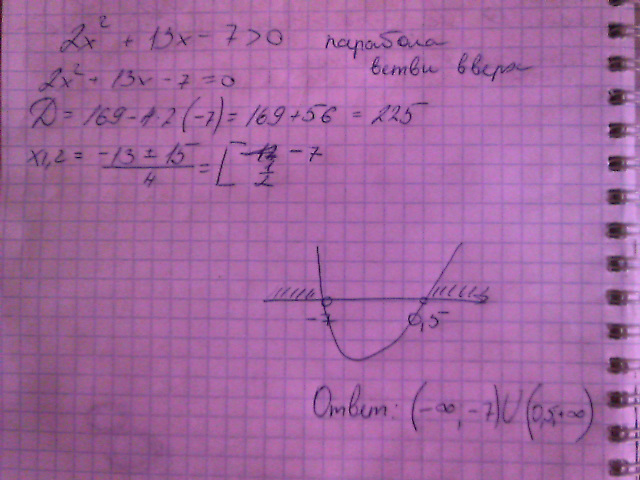 2x² + 13x - 7 > 0 парабола
ветви вверх
2x² + 13x - 7 = 0
D = 169 - 4·2(-7) = 169 + 56 = 225
x1,2 = -13 ± 15 / 4 = [ -7
1/2
-7 0,5
Ответ: (-∞, -7) U (0,5, +∞)